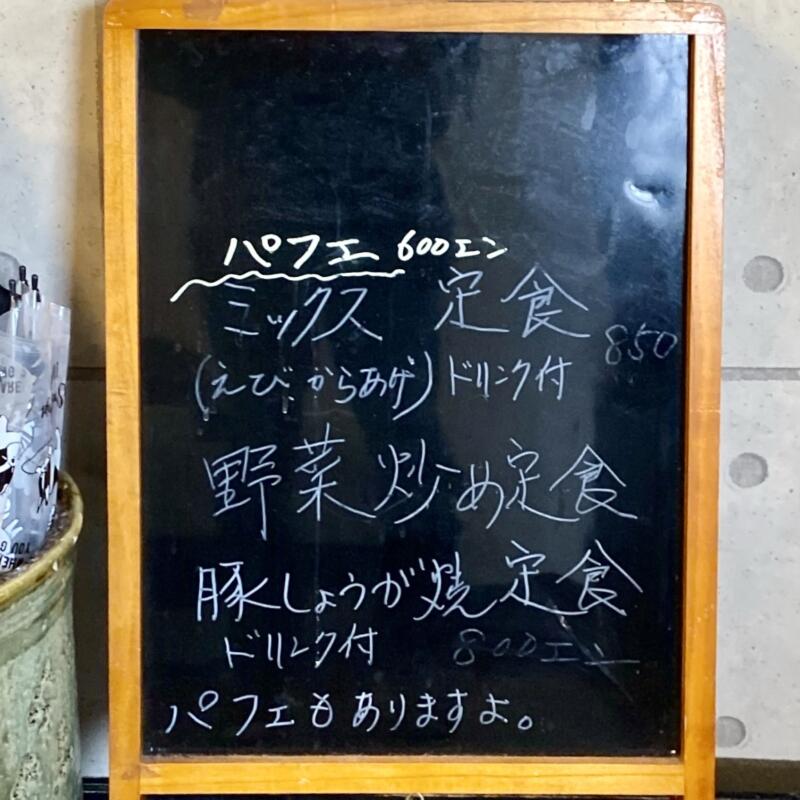 パフェ 600エン
ミックス 定食 850
(えび からあげ) ドリンク付
野菜炒め定食
豚しょうが焼定食
ドリンク付 800エン
パフェもありますよ。